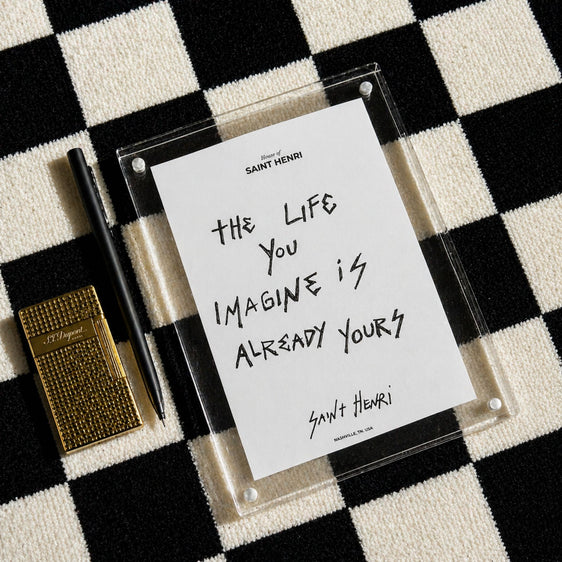 House of
SAINT HENRI
THE LIFE
YOU
IMAGINE iS
ALREADY YOURS
SAiNT HENRI
NASHVILLE, TN, USA
S.T. Dupont
PARIS